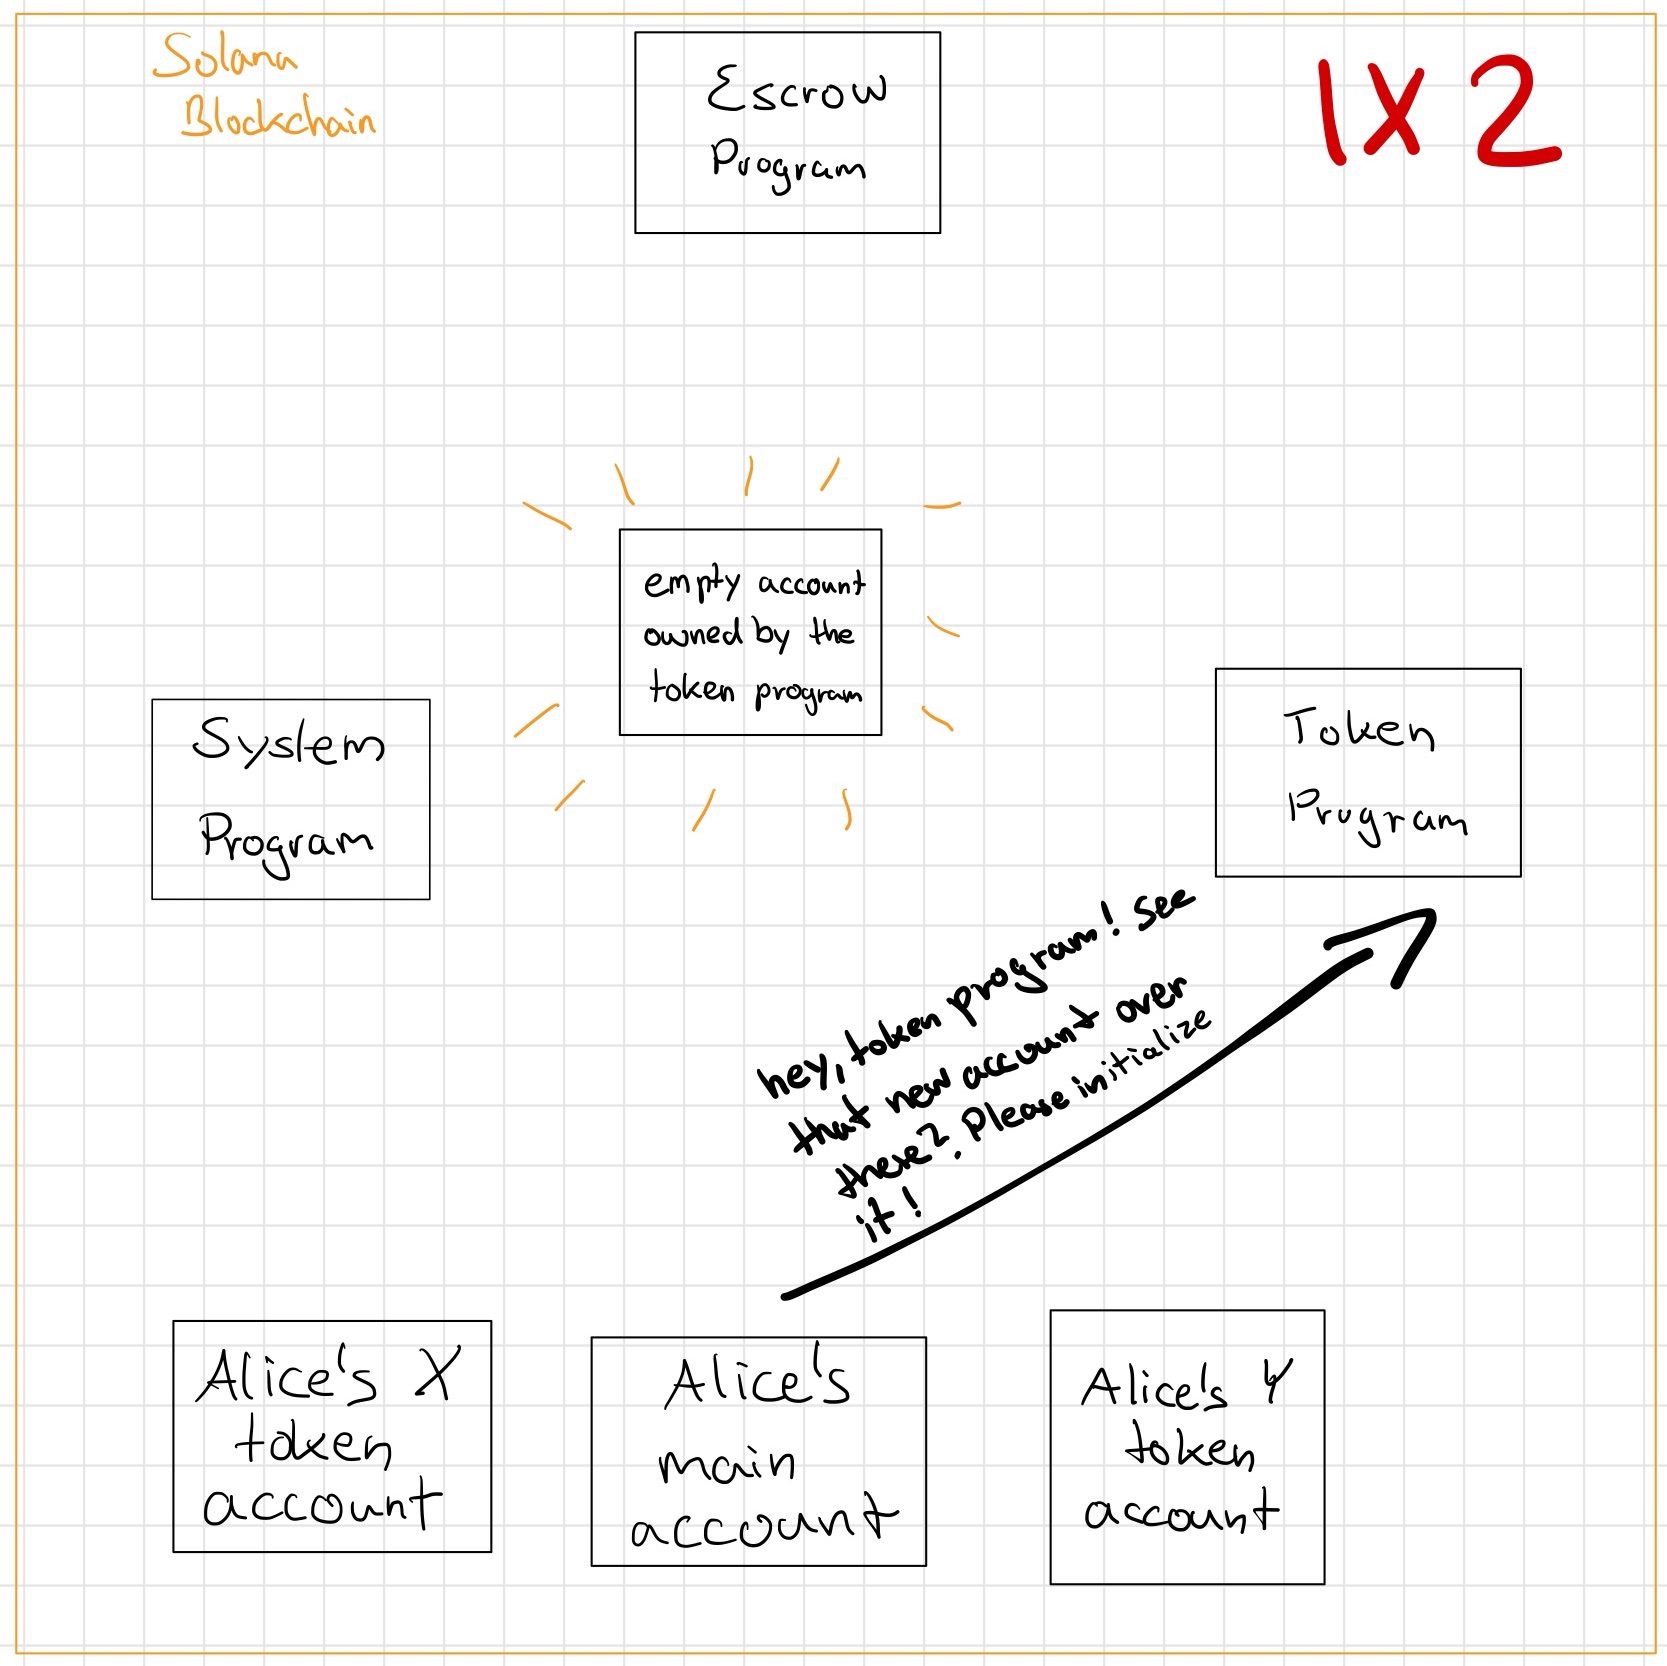 Solana
Blockchain
Escrow
Program
IX 2
empty account
owned by the
token program
System
Program
Token
Program
hey, token program! see
that new account over
there? Please initialize
it!
Alice's X
token
account
Alice's
main
account
Alice's Y
token
account